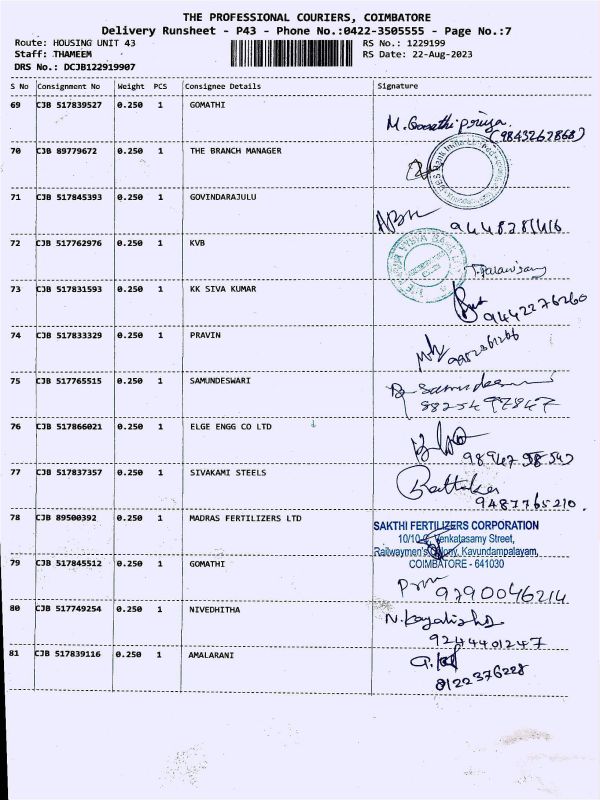 THE PROFESSIONAL COURIERS, COIMBATORE
Delivery Runsheet - P43 - Phone No.:0422-3505555 - Page No.:7
Route: HOUSING UNIT 43 RS No.: 1229199
Staff: THAMEEM RS Date: 22-Aug-2023
DRS No.: DCJB122919907
S No Consignment No Weight PCS Consignee Details Signature
69 CJB 517839527 0.250 1 GOMATHI
M. Gomathi priya
(9843262868)
70 CJB 89779672 0.250 1 THE BRANCH MANAGER
71 CJB 517845393 0.250 1 GOVINDARAJULU
72 CJB 517762976 0.250 1 KVB
73 CJB 517831593 0.250 1 KK SIVA KUMAR
9442276260
74 CJB 517833329 0.250 1 PRAVIN
75 CJB 517765515 0.250 1 SAMUNDESWARI
8825497847
76 CJB 517866021 0.250 1 ELGE ENGG CO LTD
77 CJB 517837357 0.250 1 SIVAKAMI STEELS
9487765210.
78 CJB 89500392 0.250 1 MADRAS FERTILIZERS LTD
SAKTHI FERTILIZERS CORPORATION
Venkatasamy Street,
Railwaymen's Colony, Kavundampalayam,
COIMBATORE - 641030
79 CJB 517845512 0.250 1 GOMATHI
9790046214
80 CJB 517749254 0.250 1 NIVEDHITHA
9244401247
81 CJB 517839116 0.250 1 AMALARANI
8122376228